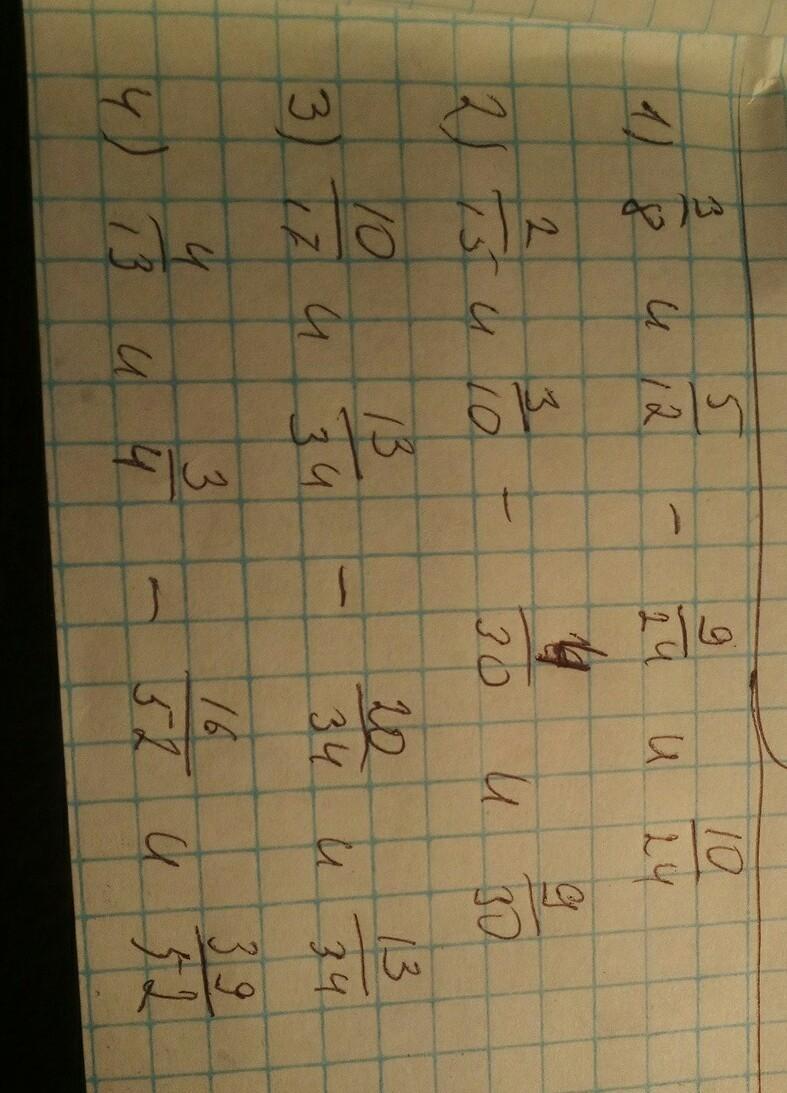 1) 3/8 и 5/12 - 9/24 и 10/24
2) 2/15 и 3/10 - 4/30 и 9/30
3) 10/17 и 13/34 - 20/34 и 13/34
4) 4/13 и 3/4 - 16/52 и 39/52